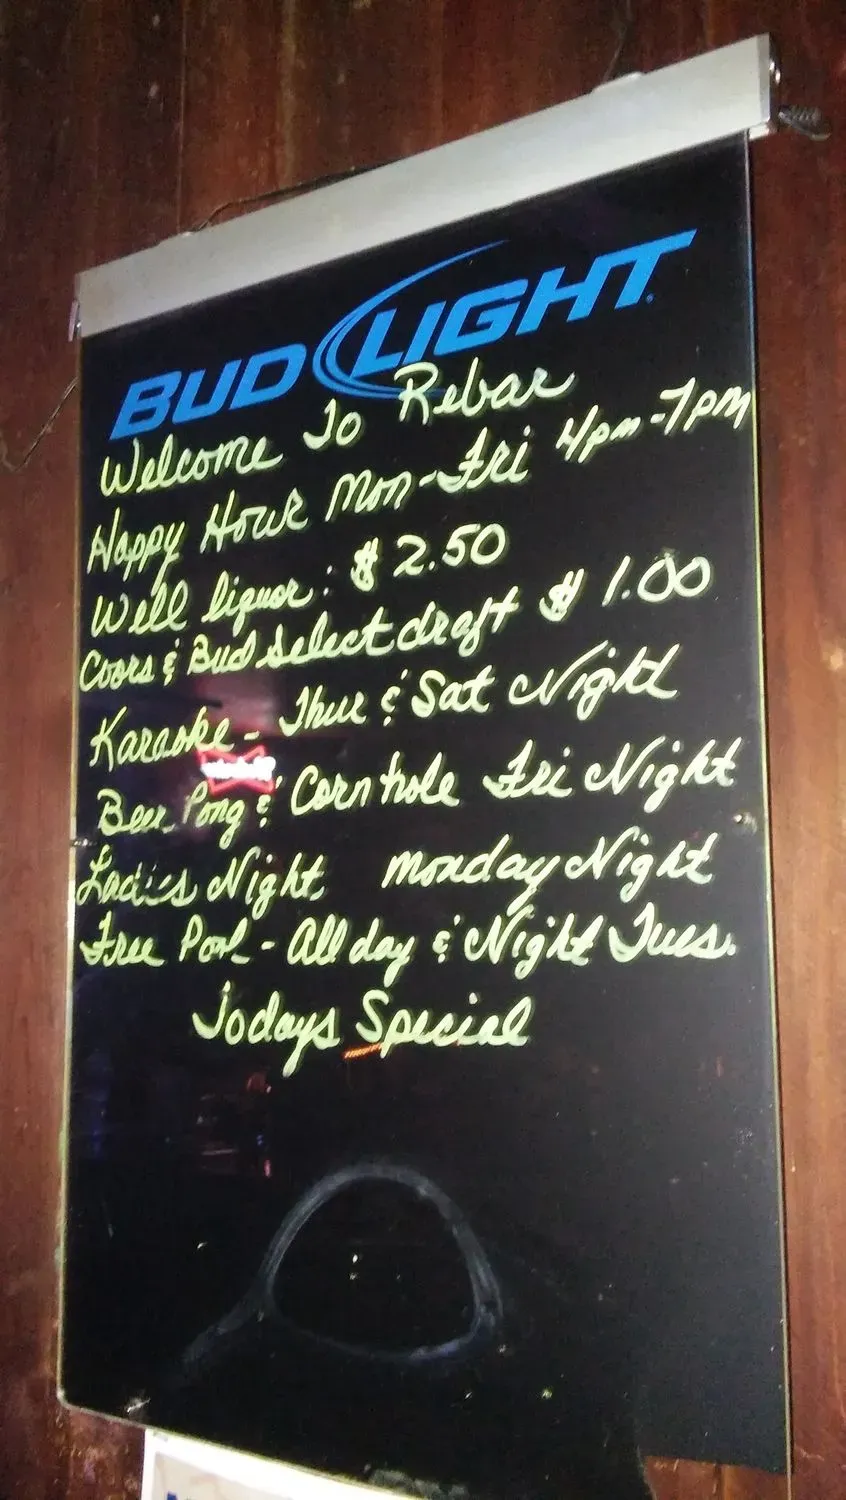 BUD LIGHT
Welcome To Rebar
Happy Hour Mon-Fri 4pm-7pm
Well liquor: $2.50
Coors & Bud Select draft $1.00
Karaoke - Thur & Sat Night
Beer Pong & Cornhole Fri Night
Ladies Night Monday Night
Free Pool - All day & Night Tues.
Todays Special